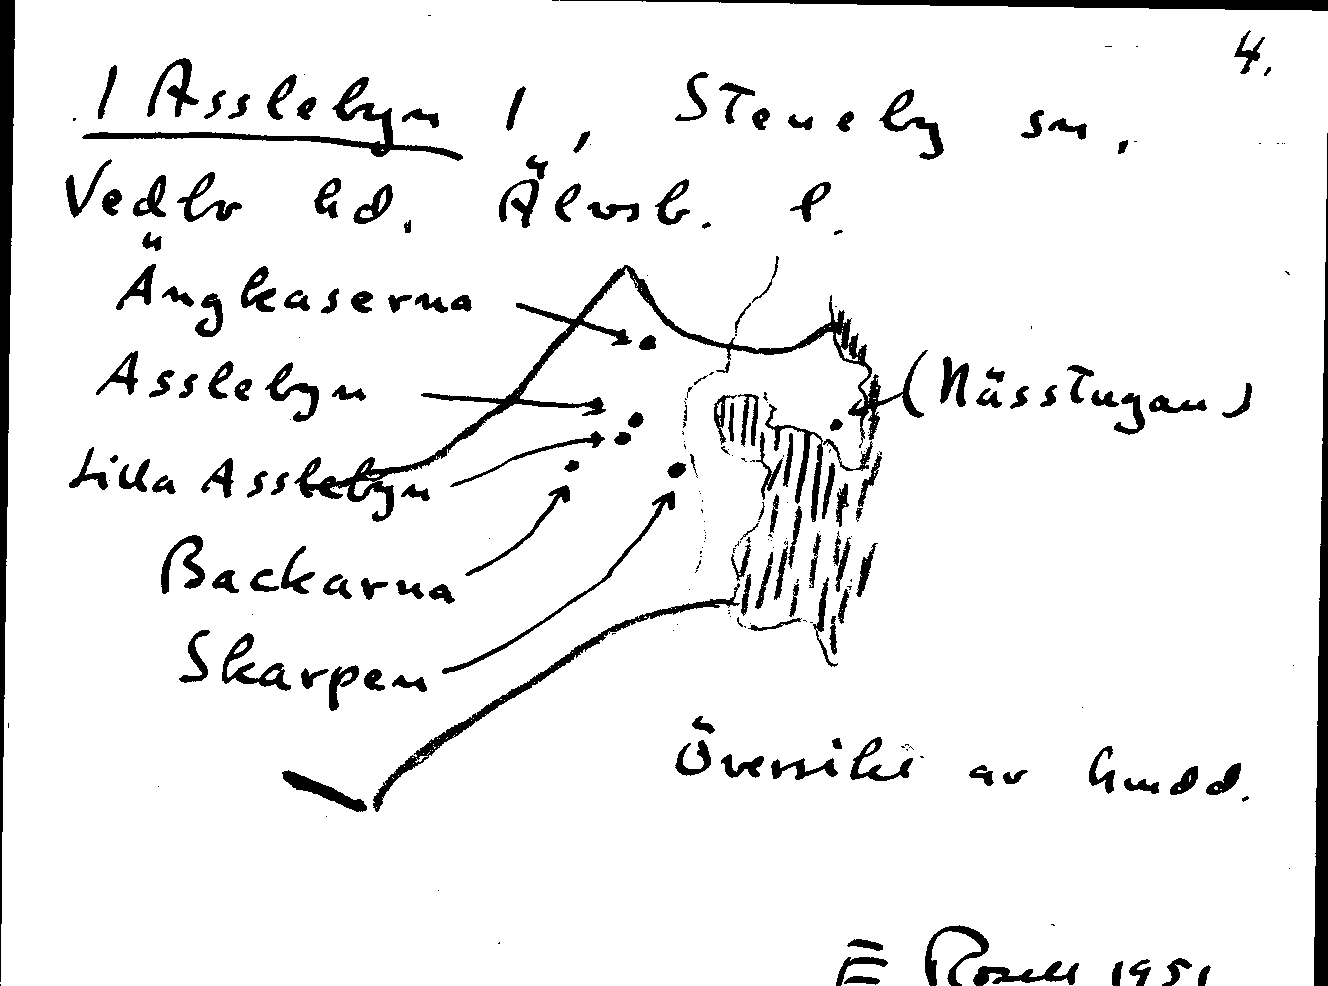 4.
1 Asslebyn 1, Steneby sn.
Vedbo hd. Älvsb. l.
Ängkaserna
Asslebyn
(Nässtugan)
Lilla Asslebyn
Backarna
Skarpen
Översikt av hmdd.
E Rosell 1951